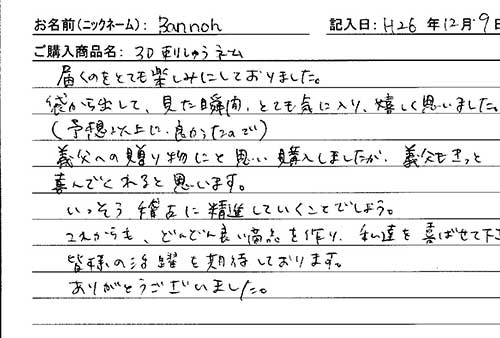 お名前(ニックネーム): Bannoh 記入日: H26年12月9日
ご購入商品名: 3D刺しゅうネーム
届くのをとても楽しみにしておりました。
袋から出して、見た瞬間、とても気に入り、嬉しく思いました。
(予想以上に良かったので)
義父への贈り物にと思い購入しましたが、義父もきっと
喜んでくれると思います。
いっそう稽古に精進していくことでしょう。
これからも、どんどん良い商品を作り、私達を喜ばせて下
皆様の活躍を期待しております。
ありがとうございました。